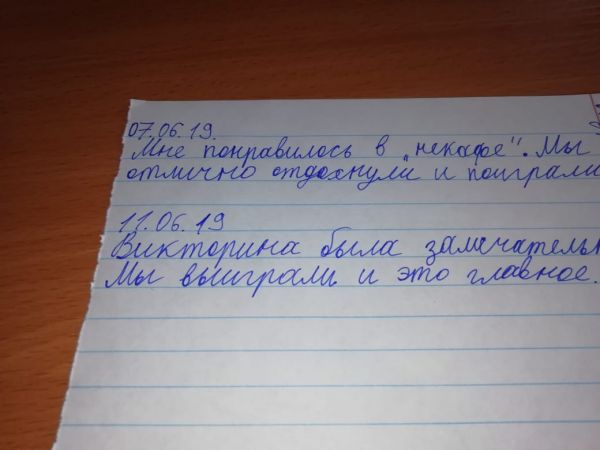 07.06.19.
Мне понравилось в „некафе". Мы
отлично отдохнули и поиграли
11.06.19
Викторина была замечательн
Мы выиграли и это главное.